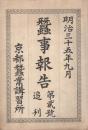 明治三十五年九月
蠶事報告
第貳號
追刊
京都蠶業講習所